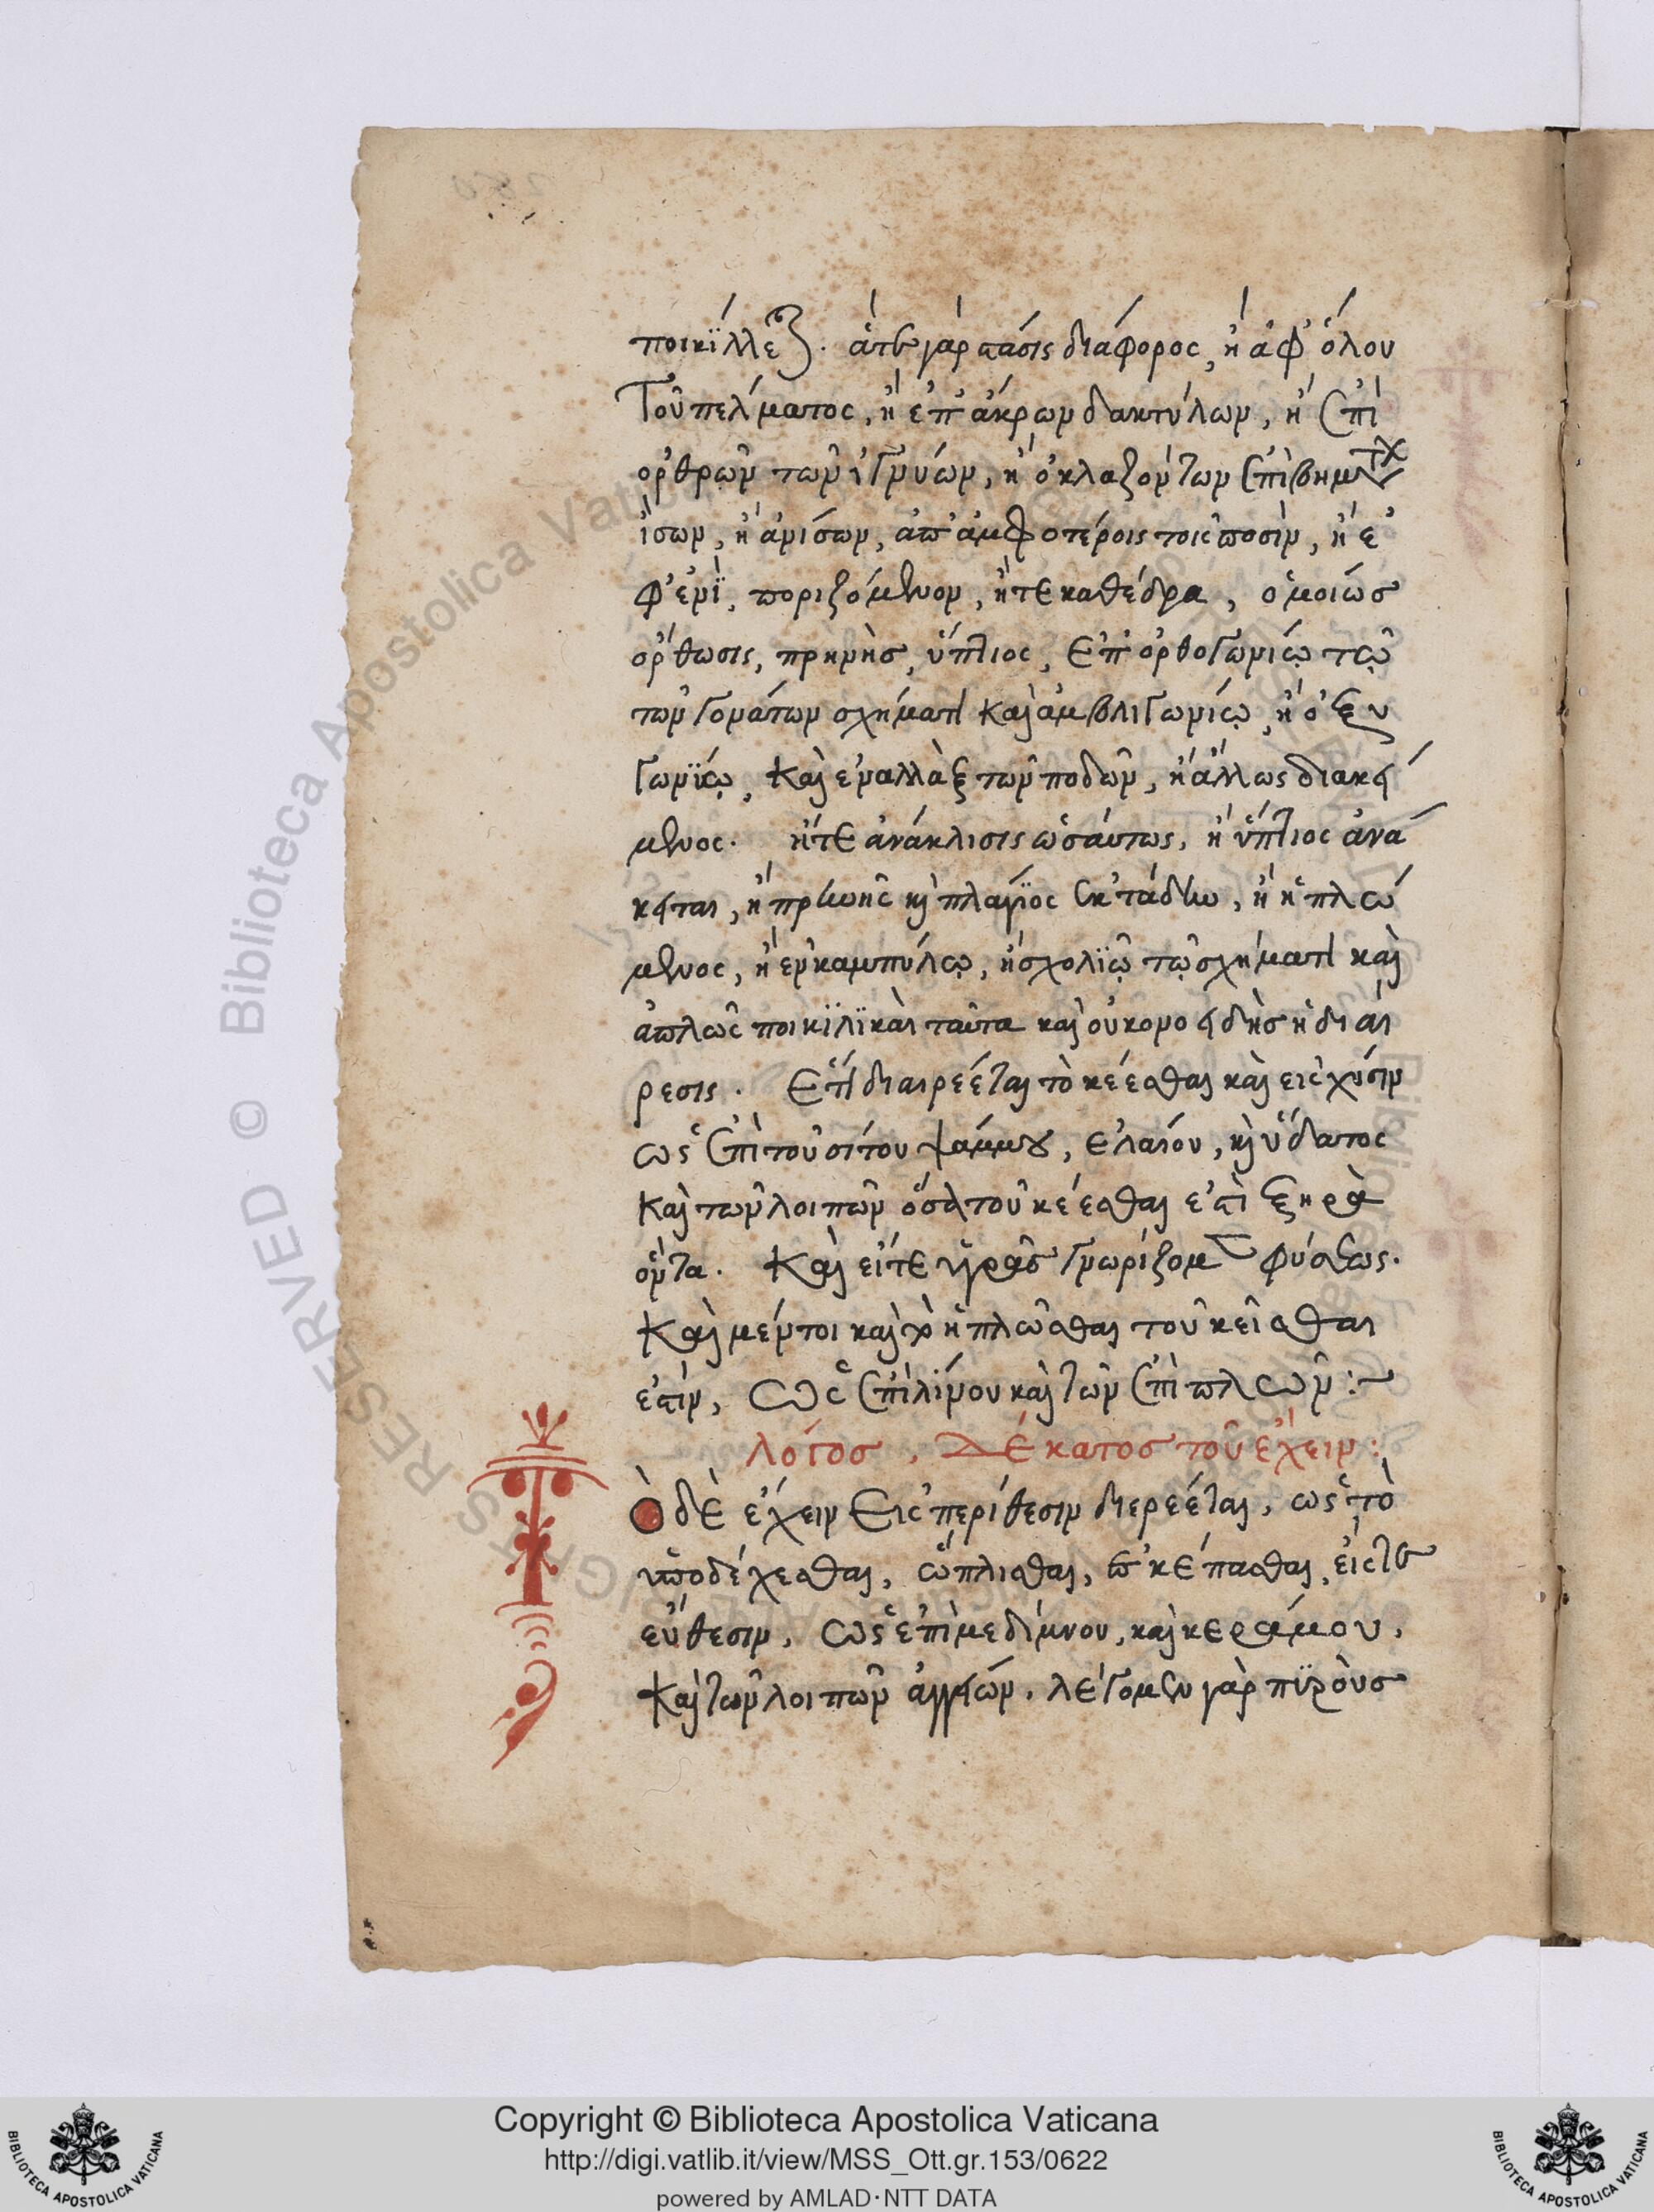 ποικίλλεται. ἅτε γὰρ στάσις διάφορος, ἢ ἀφ' ὅλου
Τοῦ πελματος, ἢ ἐπ' ἄκρων δακτύλων, ἢ ἐπὶ
ορθρῶν τῶν ἰγνύων, ἢ ὀκλαζόντων ἐπὶ βημάτων
ἴσων, ἢ ἀνίσων, ἀπ' ἀμφοτέροις τοῖς ποσὶν, ἢ ἐ
φ' ἑνὶ, ποριζόμενον, ἥτε καθέδρα, ὁμοιώσ
ὄρθωσις, πρηνὴσ, ὕπτιος, Ἐπ' ὀρθογωνίῳ τῷ
τῶν γονάτων σχήματι καὶ ἀμβλιγωνίῳ, ἢ ὀξυ
γωνίῳ, Καὶ ἐναλλὰξ τῶν ποδῶν, ἢ ἄλλως διακεί
μενος. ἥτε ἀνάκλισις ὡσαύτως, ἢ ὕπτιος ἀνά
κειται, ἢ πρινηὴς κὶ πλαγίος ἐκτάδην, ἢ ἡπλώ
μενος, ἢ ἐν καμπύλῳ, ἢ σχολϊῷ τῷ σχήματι καὶ
ἁπλῶς ποικϊλϊκὰι ταῦτα καὶ οὐκ ομοειδὴσ ἡ διαί
ρεσις. Ἔτι διαιρέεται τὸ κέεσθαι καὶ εἰς χύσιν
ὡς ἐπὶ τοῦ σίτου ψάμμου, ἐλαίου, κὶ ὕδατος
Καὶ τῶν λοιπῶν ὅσα τοῦ κέεσθαι ἐστὶ ξηρὰ
ὄντα. Καὶ εἴτε ὑγρᾶσ γνωρίζομεν φύσεως.
Καὶ μέντοι καὶ τὸ ἡπλῶσθαι τοῦ κεῖσθαι
ἐστίν, Ὡς ἐπὶ λίνου καὶ τῶν ἐπίπλων :~
Λόγοσ, Δέκατοσ τοῦ ἔχειν :
Ὸ δὲ ἔχειν Εἰς περίθεσιν διερέεται, ὡς τὸ
ὑποδέχεσθαι, ὥπλισθαι, ἐσκέπασθαι, εἰς τε
εὔθεσιν, Ὡς ἐπὶ μεδίμνου, καὶ κεράμου,
Καὶ τῶν λοιπῶν ἀγγείων, λέγομεν γὰρ πϊροὺσ
Copyright © Biblioteca Apostolica Vaticana
http://digi.vatlib.it/view/MSS_Ott.gr.153/0622
powered by AMLAD·NTT DATA